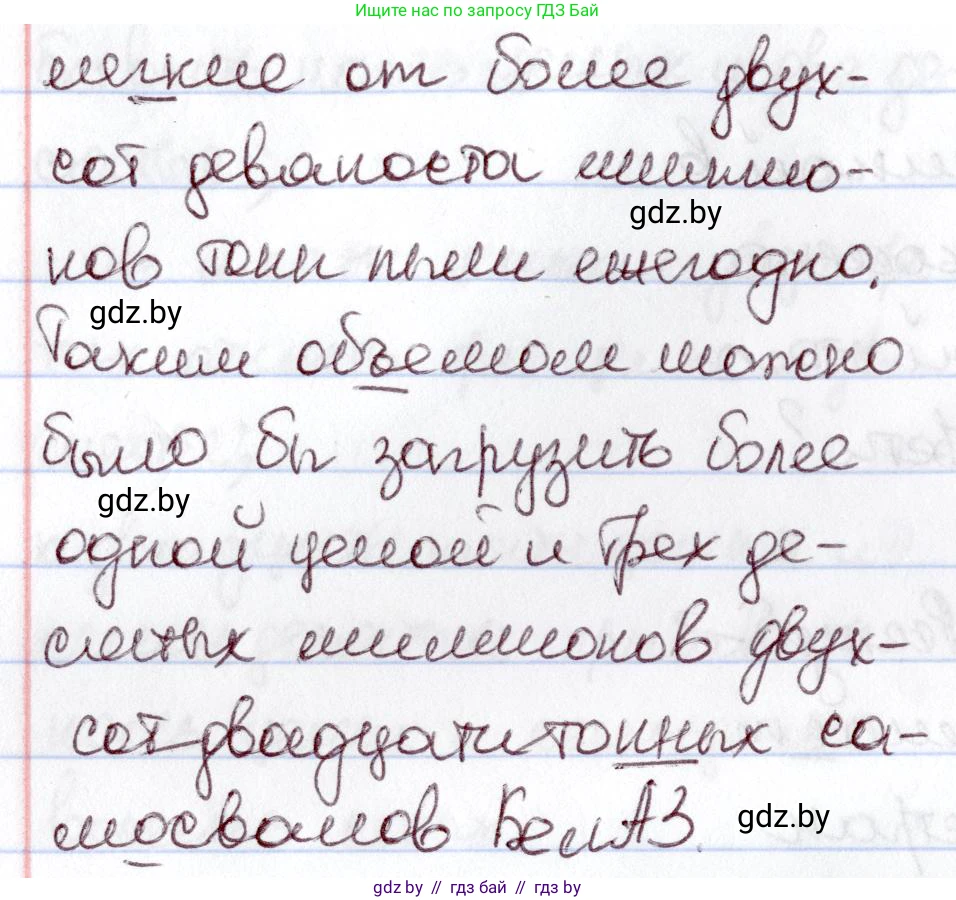 Ищите нас по запросу ГДЗ Бай
легкие от более двух-
сот девяноста миллио-
нов тонн пыли ежегодно.
gdz.by
gdz.by
Таким объемом можно
было бы загрузить более
gdz.by
одной целой и трех де-
сятых миллионов двух-
сотдвадцатитонных са-
мосвалов БелАЗ.
gdz.by
gdz.by // гдз бай // гдз by